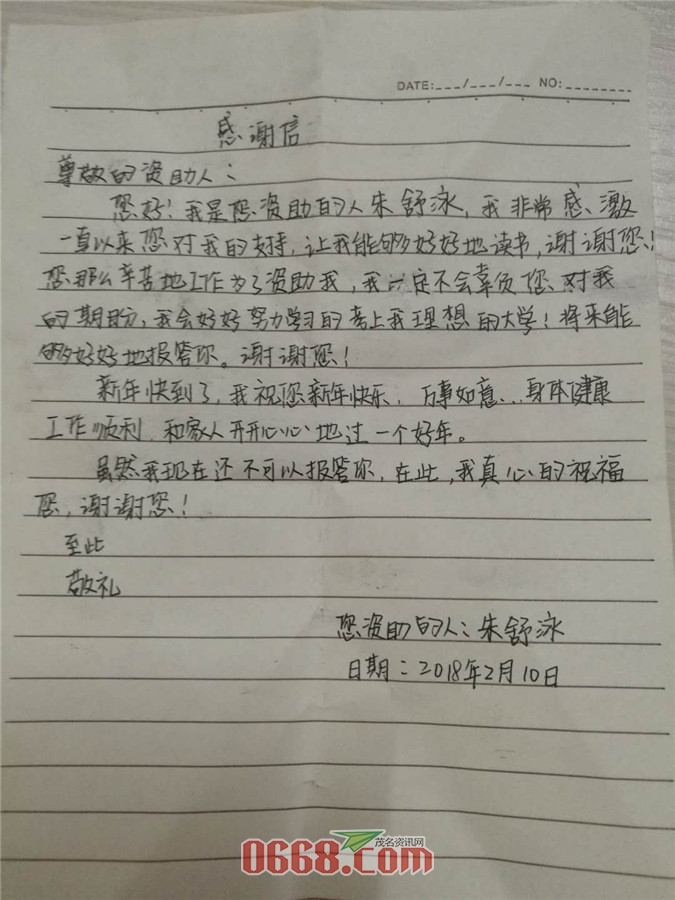 DATE:___/___/___ NO:________
感谢信
尊敬的资助人：
您好！我是您资助的人朱舒泳，我非常感激
一直以来您对我的支持，让我能够好好地读书，谢谢您！
您那么辛苦地工作为了资助我，我一定不会辜负您对我
的期盼，我会好好努力学习的考上我理想的大学！将来能
够好好地报答你。谢谢您！
新年快到了，我祝您新年快乐，万事如意...身体健康
工作顺利，和家人开开心心地过一个好年。
虽然我现在还不可以报答你，在此，我真心的祝福
您，谢谢您！
至此
敬礼
您资助的人：朱舒泳
日期：2018年2月10日
茂名资讯网
0668.com